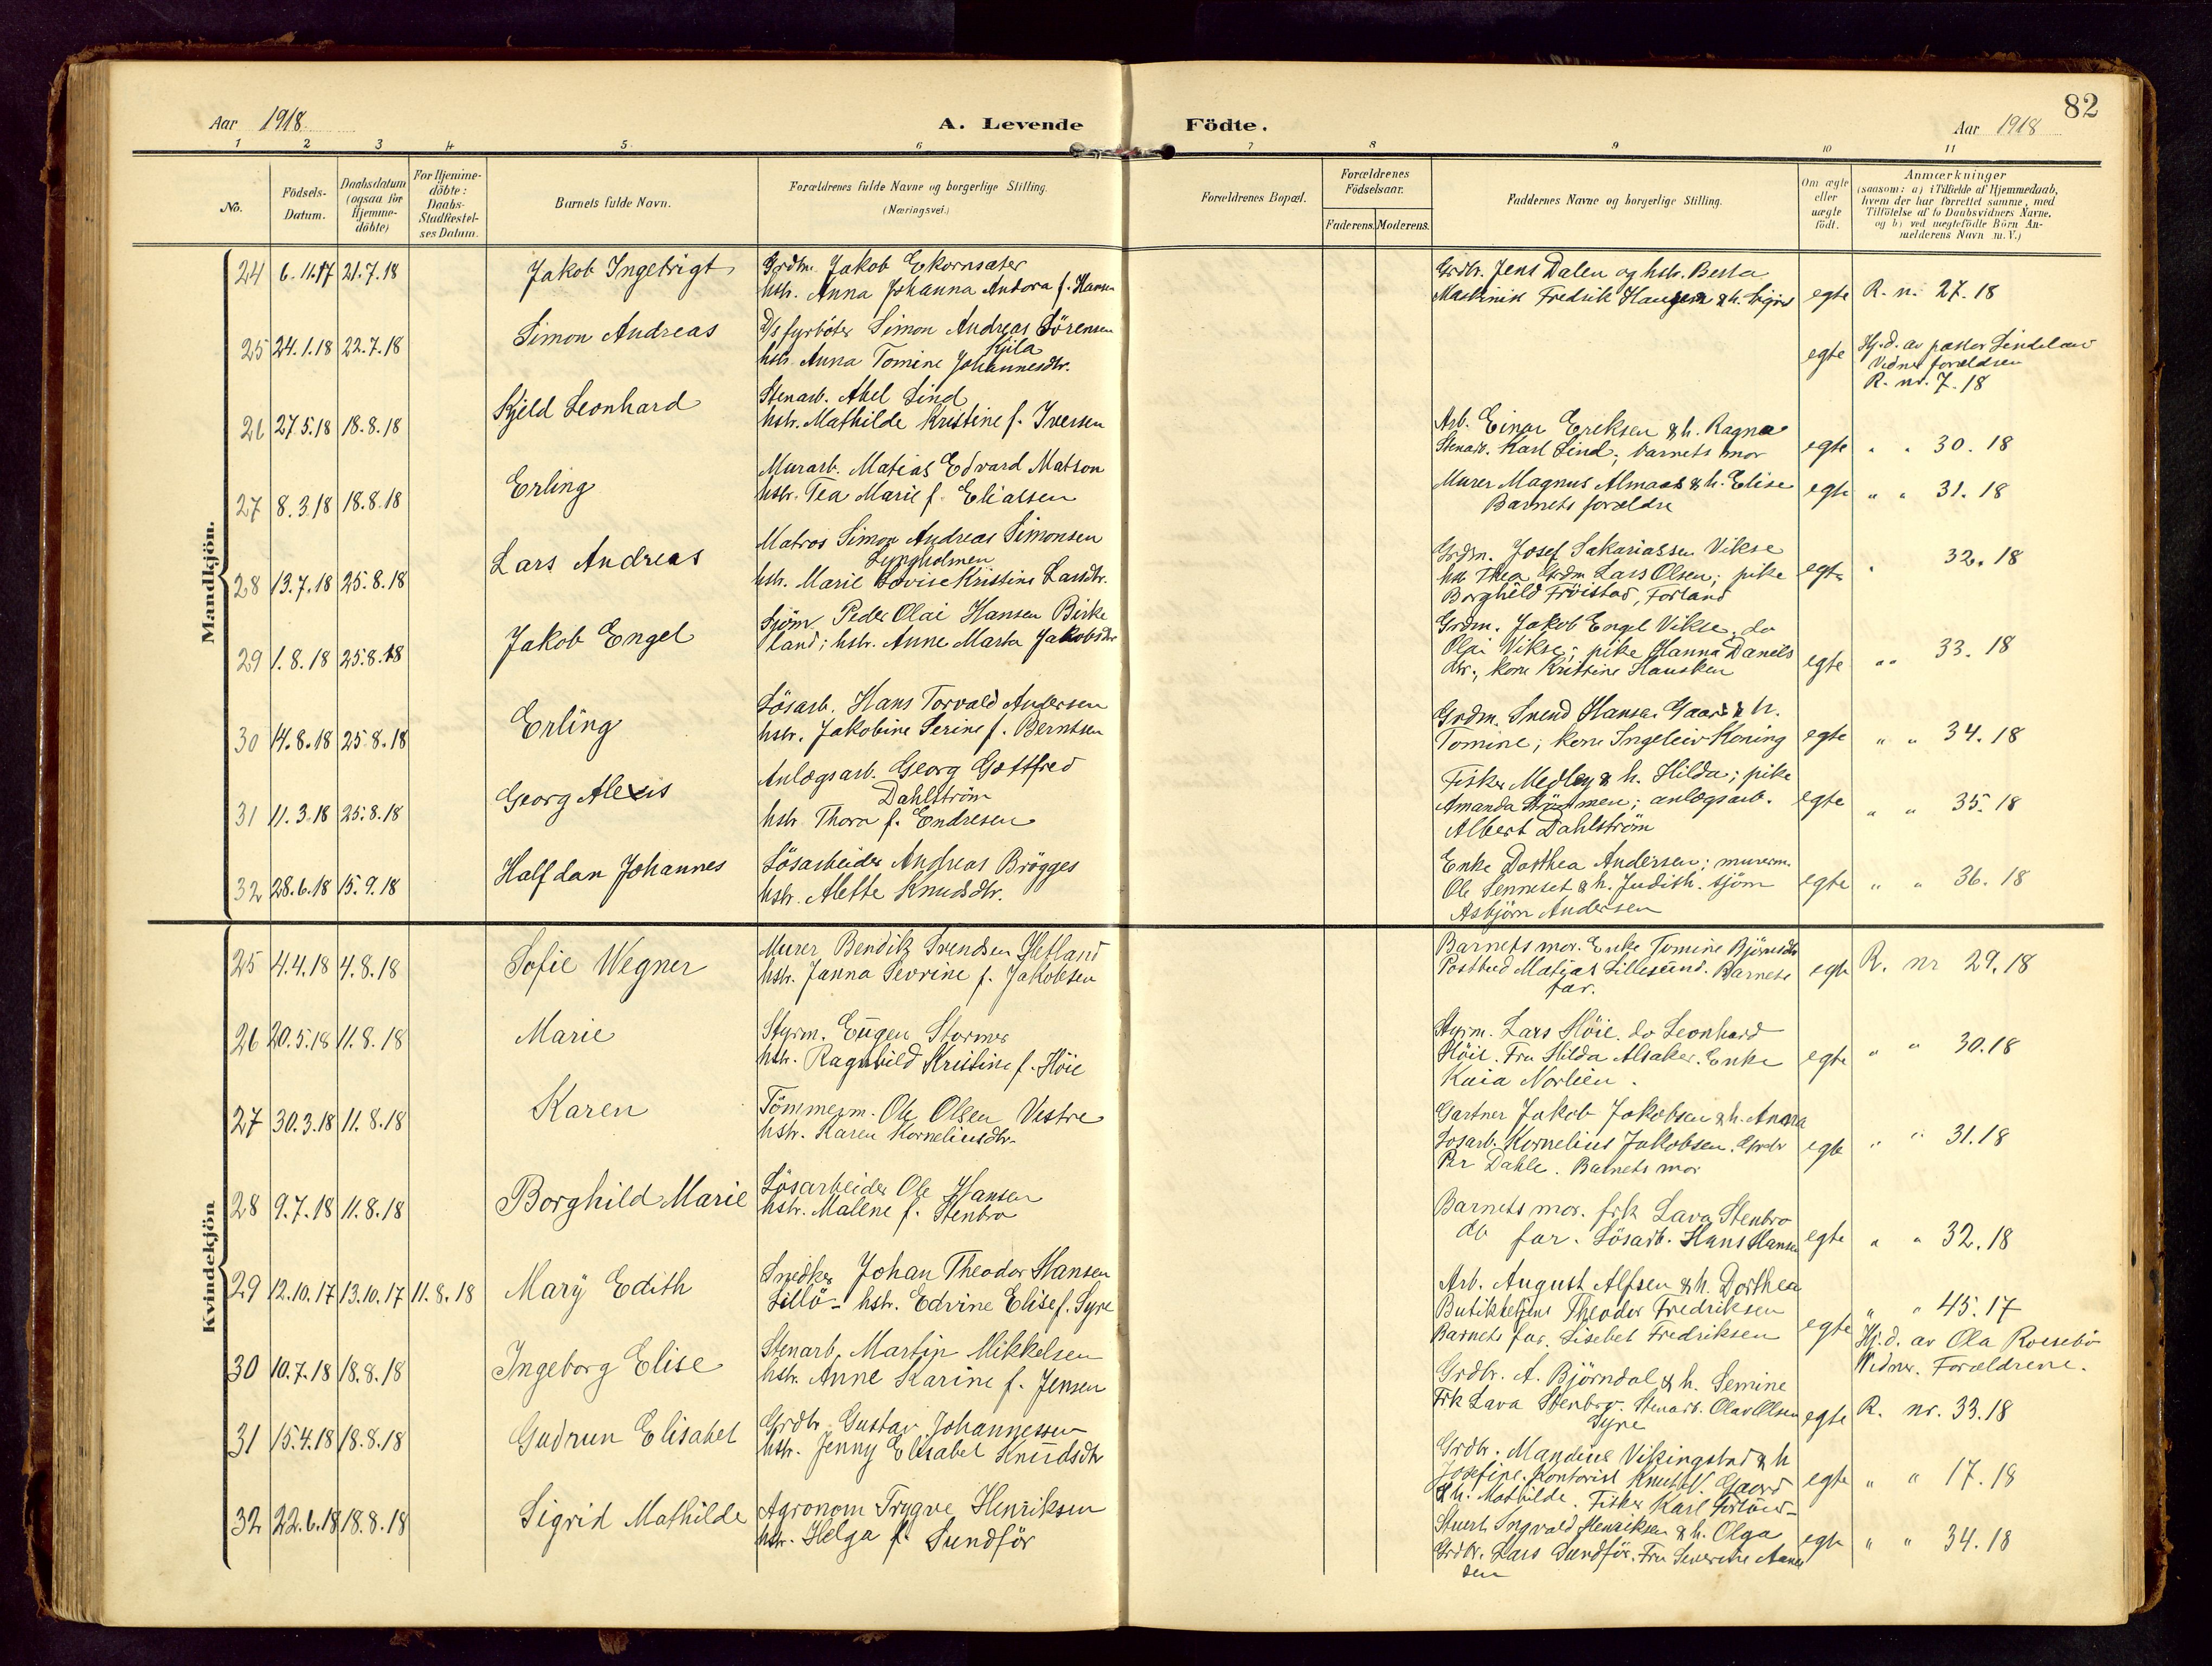 Aar 1918
A. Levende
Födte.
Aar 1918
82
1 2 3 4 5 6 7 8 9 10 11
No.
Födsels-
Datum.
Daabsdatum
(ogsaa for
Hjemme-
döbte)
For Hjemme-
döbte:
Daabs-
Stadfestel-
ses Datum.
Barnets fulde Navn.
Forældrenes fulde Navne og borgerlige Stilling.
(Næringsvei.)
Forældrenes Bopæl.
Forældrenes
Födselsaar.
Faderens. Moderens.
Faddernes Navne og borgerlige Stilling.
Om ægte
eller
uægte
födt.
Anmærkninger
(saasom: a) i Tilfælde af Hjemmedaab,
hvem der har forrettet samme, med
Tilföielse af to Daabsvidners Navne,
og b) ved uægtefödte Börn An-
melderens Navn m. V.)
Mandkjön.
24 6.11.17 21.7.18 Jakob Ingebrigt
Grdbr. Jakob Ekornsæter
hstr. Anna Johanna Andora f. Hansen
Grdbr. Jens Dalen og hstr. Berta
Maskinist Fredrik Haugen & h. Signe
egte R. n. 27.18
25 24.1.18 22.7.18 Simon Andreas
D/s fyrböter Simon Andreas Sörensen
Kjila
hstr. Anna Tomine Johannesdtr.
egte Hj.d. av pastor Lindeland
Vidner forældren
R. nr. 7.18
26 27.5.18 18.8.18 Kjeld Leonhard
Stenarb. Abel Lind
hstr. Mathilde Kristine f. Iversen
Arb. Einar Ereksen & h. Ragna
Stenarb. Karl Lind; barnets mor
egte " " 30.18
27 8.3.18 18.8.18 Erling
Murarb. Matias Edvard Matson
hstr. Tea Marie f. Eliassen
Murer Magnus Almaas & h. Elise
Barnets forældre
egte " " 31.18
28 13.7.18 25.8.18 Lars Andreas
Matros Simon Andreas Simonsen
Lyngholmen
hstr. Marie Lovise Kristine Larsdtr.
Grdm. Josef Sakariassen Vikse
hstr. Thea Grdm Lars Olsen; pike
Borghild Fröistad, Förland
egte " 32.18
29 1.8.18 25.8.18 Jakob Engel
Sjöm. Peder Olai Hansen Birke
land; hstr. Anne Marta Jakobsdtr
Grdm. Jakob Engel Vikse. do
Olai Vikse; pike Hanna Daniels
dtr.; kone Kristine Hausken
egte " " 33.18
30 14.8.18 25.8.18 Erling
Lösarb. Hans Torvald Andersen
hstr. Jakobine Serine f. Berntsen
Grdm. Svend Hansen Gaard & h.
Tomine; kone Ingeleiv Koning
egte " " 34.18
31 11.3.18 25.8.18 Georg Alexis
Anlægsarb. Georg Gottfred
Dahlström
hstr Thora f. Endresen
Fisker Medley & h. Hilda; pike
Amanda; anlægsarb.
Albert Dahlström
egte " " 35.18
32 28.6.18 15.9.18 Halfdan Johannes
Lösarbeider Andreas Brögges
hstr. Alette Knudsdtr.
Enke Dorthea Andersen; murerm.
Ole Senneset & h. Judith. sjöm
Asbjörn Andersen
egte " " 36.18
Kvindekjön
25 4.4.18 4.8.18 Sofie Wegner
Murer Bendik Svendsen Hetland
hstr. Janna Sevrine f. Jakobsen
Barnets mor. Enke Tomine Björnsdtr
Postbud Matias Lillesund. Barnets
far.
egte R. nr 29.18
26 20.5.18 11.8.18 Marie
Styrm. Eugen Stormer
hstr. Ragnhild Kristine f. Höie
Styrm. Lars Höie. do Leonhard
Höie. Fru Hilda Alsaker. Enke
Kaia Norheim.
egte " " 30.18
27 30.3.18 11.8.18 Karen
Tömmerm. Ole Olsen Vestre
hstr. Karen Korneliusdtr.
Gartner Jakob Jakobsen & h. Anna
Losarb. Kornelius Jakobsen. Grdbr
Per Dahle. Barnets mor
egte " " 31.18
28 9.7.18 11.8.18 Borghild Marie
Lösarbeider Ole Hansen
hstr. Malene f. Stenbro
Barnets mor. frk Lava Stenbro
do far. Lösarb. Hans Hansen
egte " " 32.18
29 12.10.17 13.10.17 11.8.18 Mary Edith
Snedker Johan Theodor Hansen
Lillö - hstr. Edvine Elise f. Syre
Arb. August Alfsen & h. Dorthea
Theodor Fredriksen
Barnets far. Lisebet Fredriksen
egte " " 45.17
Hj.d. av Ola Roesebö
Vidner. Forældrene.
30 10.7.18 18.8.18 Ingeborg Elise
Stenarb. Martin Mikkelsen
hstr. Anne Karine f. Jensen
Grdbr. A. Björndal & h. Semine
Frk Lava Stenbro. Stenarb. Olav Olsen
Syre
egte R. nr. 33.18
31 15.4.18 18.8.18 Gudrun Elisabet
Grdbr Gustav Johannessen
hstr. Jenny Elisabet Knudsdtr
Grdbr. Mandius Vikingstad & h
Josefine. Kontorist Knut V. Gaard
& h. Mathilde. Fisker Karl Förland
egte " " 17.18
32 22.6.18 18.8.18 Sigrid Mathilde
Agronom Trygve Henriksen
hstr. Helga f. Sundför
Stuert Ingvald Henriksen & h. Olga
Grdbr. Lars Sundför. Fru Severine Aanen
sen
egte " " 34.18